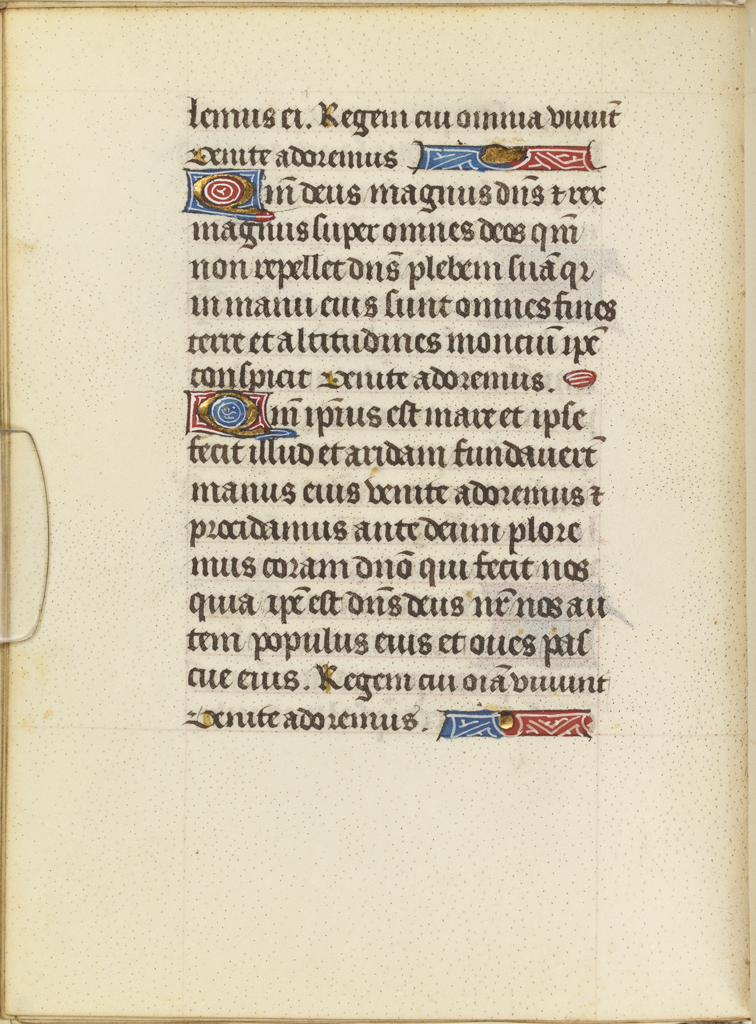 lemus ei. Regem cui omnia viuūt
Venite adoremus
Qm̄ deus magnus dn̄s ⁊ rex
magnus super omnes deos qm̄
non repellet dn̄s plebem suā qꝛ
in manu eius sunt omnes fines
terre et altitudines monciū ip̄e
conspicit Venite adoremus.
Qm̄ ip̄ius est mare et ipse
fecit illud et aridam fundauert̄
manus eius venite adoremus ⁊
procidamus ante deum plore
mus coram dn̄o qui fecit nos
quia ip̄e est dn̄s deus nr̄ nos au
tem populus eius et oues pas
cue eius. Regem cui oīa viuunt
Venite adoremus.